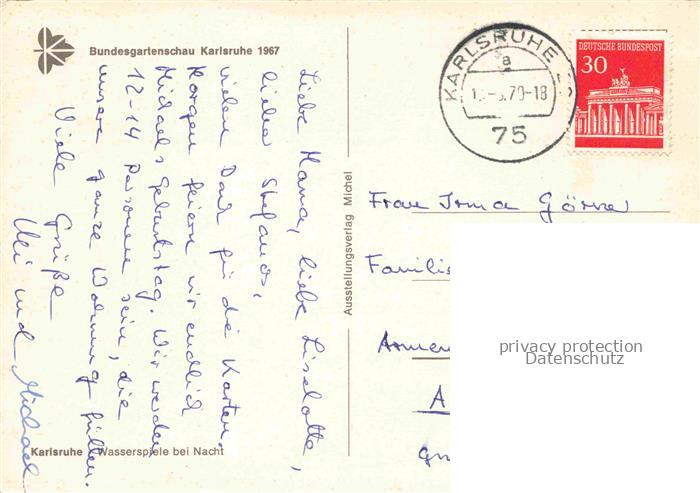 Bundesgartenschau Karlsruhe 1967
Liebe Mama, liebe Liselotte,
lieber Stefanos,
vielen Dank für die Karten.
Morgen feiern wir endlich
Michaels Geburtstag. Wir werden
12-14 Personen sein, die
unsere ganze Wohnung füllen.
Viele Grüße
und Michael
Karlsruhe Wasserspiele bei Nacht
Ausstellungsverlag Michel
KARLSRUHE
a
70-18
75
DEUTSCHE BUNDESPOST
30
Frau Irma
Famili
Armen
A
privacy protection
Datenschutz